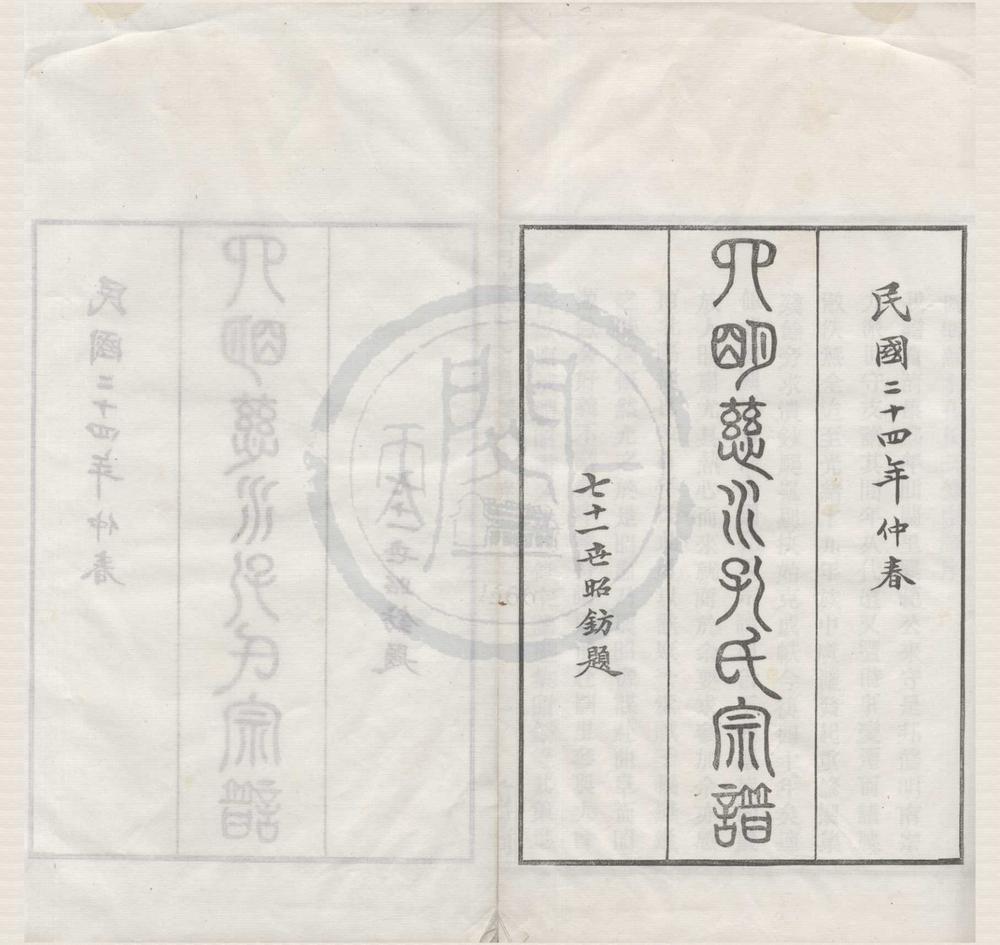 民國二十四年仲春
四朙慈水孔氏宗譜
七十一世昭鈁題